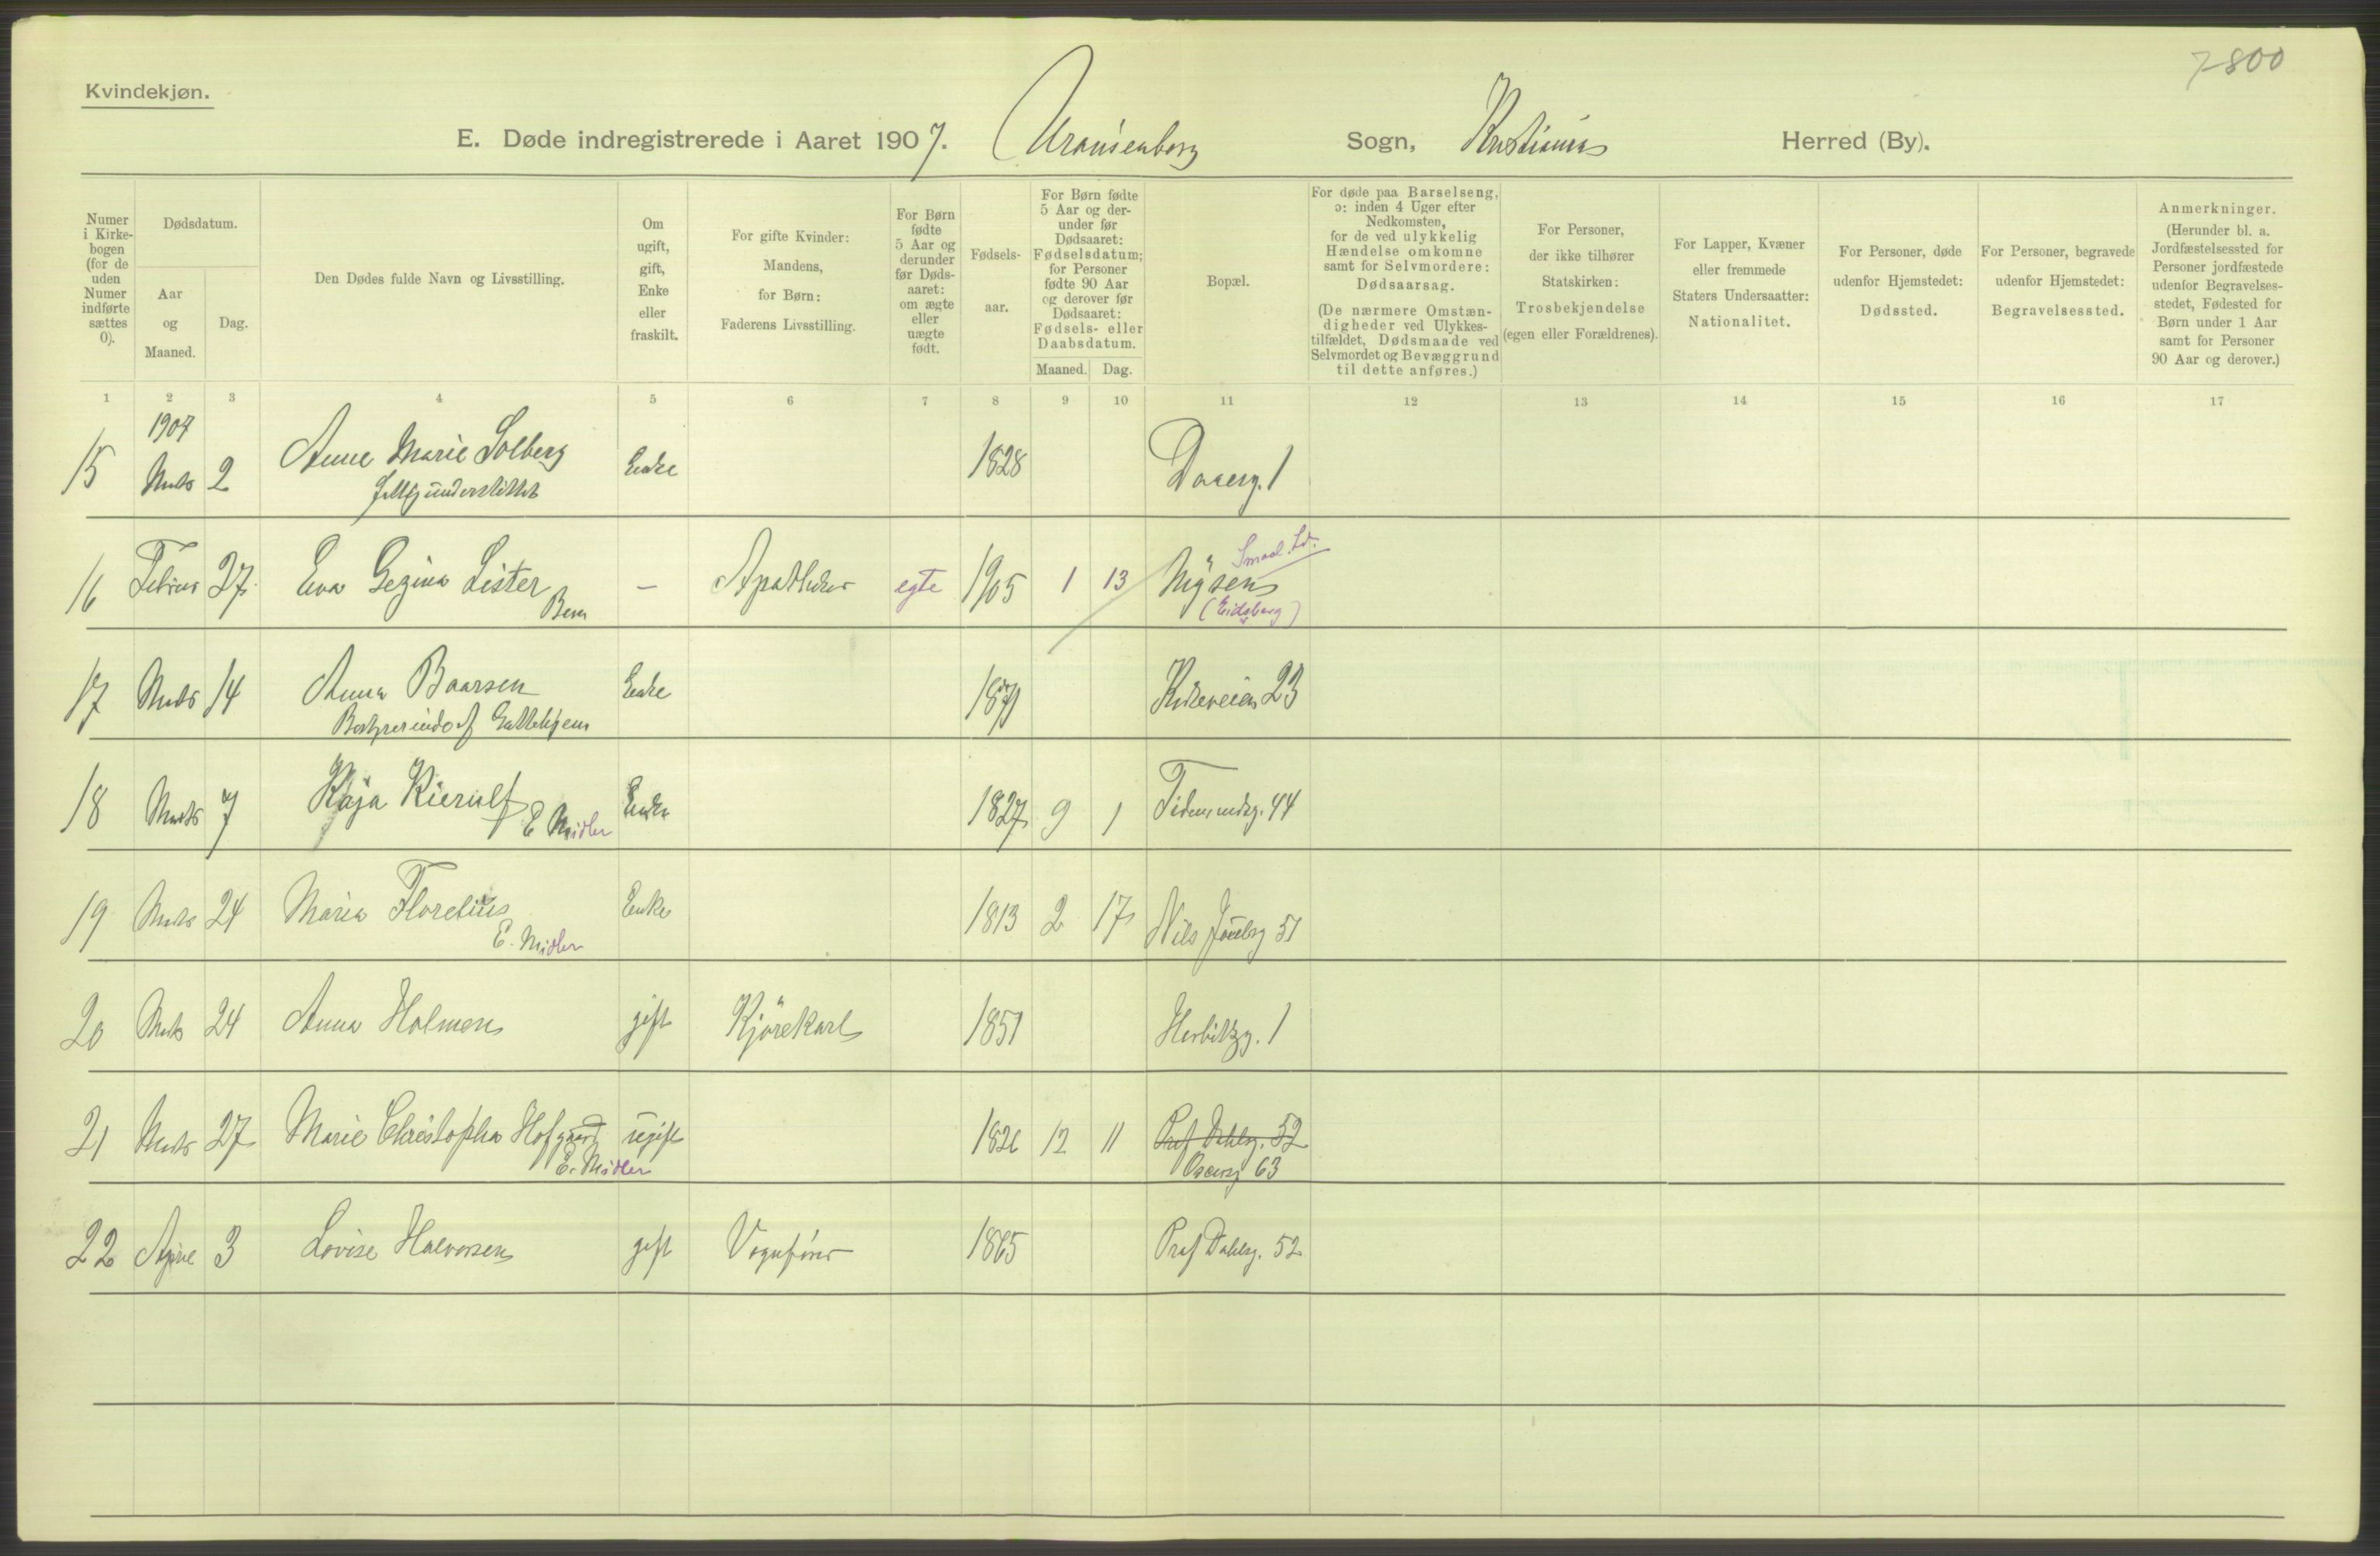 7800
Kvindekjøn.
E. Døde indregistrerede i Aaret 1907. Uranienborg Sogn, Kristiania Herred (By).
Numer i Kirkebogen (for de uden Numer indførte sættes 0).
Dødsdatum.
Aar og Maaned.
Dag.
Den Dødes fulde Navn og Livsstilling.
Om ugift, gift, Enke eller fraskilt.
For gifte Kvinder: Mandens, for Børn: Faderens Livsstilling.
For Børn fødte 5 Aar og derunder før Dødsaaret: om ægte eller uægte født.
Fødselsaar.
For Børn fødte 5 Aar og derunder før Dødsaaret: Fødselsdatum; for Personer fødte 90 Aar og derover før Dødsaaret: Fødsels- eller Daabsdatum.
Maaned. Dag.
Bopæl.
For døde paa Barselseng, ɔ: inden 4 Uger efter Nedkomsten, for de ved ulykkelig Hændelse omkomne samt for Selvmordere: Dødsaarsag.
(De nærmere Omstændigheder ved Ulykkestilfældet, Dødsmaade ved Selvmordet og Bevæggrund til dette anføres.)
For Personer, der ikke tilhører Statskirken: Trosbekjendelse (egen eller Forældrenes).
For Lapper, Kvæner eller fremmede Staters Undersaatter: Nationalitet.
For Personer, døde udenfor Hjemstedet: Dødssted.
For Personer, begravede udenfor Hjemstedet: Begravelsessted.
Anmerkninger. (Herunder bl. a. Jordfæstelsessted for Personer jordfæstede udenfor Begravelsesstedet, Fødested for Børn under 1 Aar samt for Personer 90 Aar og derover.)
1 2 3 4 5 6 7 8 9 10 11 12 13 14 15 16 17
1907
15 Marts 2 Anne Marie Solberg Enke 1828 Daaesg. 1
16 Februar 27 Eva Gezina Lister Barn – Apotheker egte 1905 1 13 Mysen Smaal. (Eidsberg)
17 Marts 14 Anna Baarsen Enke Kirkeveien 23
18 Marts 7 Kaja Kierulf E Midler Enke 1827 9 1 Tidemandsg. 44
19 Marts 24 Maria Florelius E. Midler Enke 1813 2 17 Nils Juelsg 51
20 Marts 24 Anna Holmen gift Kjørekarl 1851 1
21 Marts 27 Marie Christopha Hofgaard E. Midler ugift 1826 12 11 Prof Dahlsg. 52
63
22 April 3 Lovise Halvorsen gift Vognfører 1865 Prof Dahlsg. 52